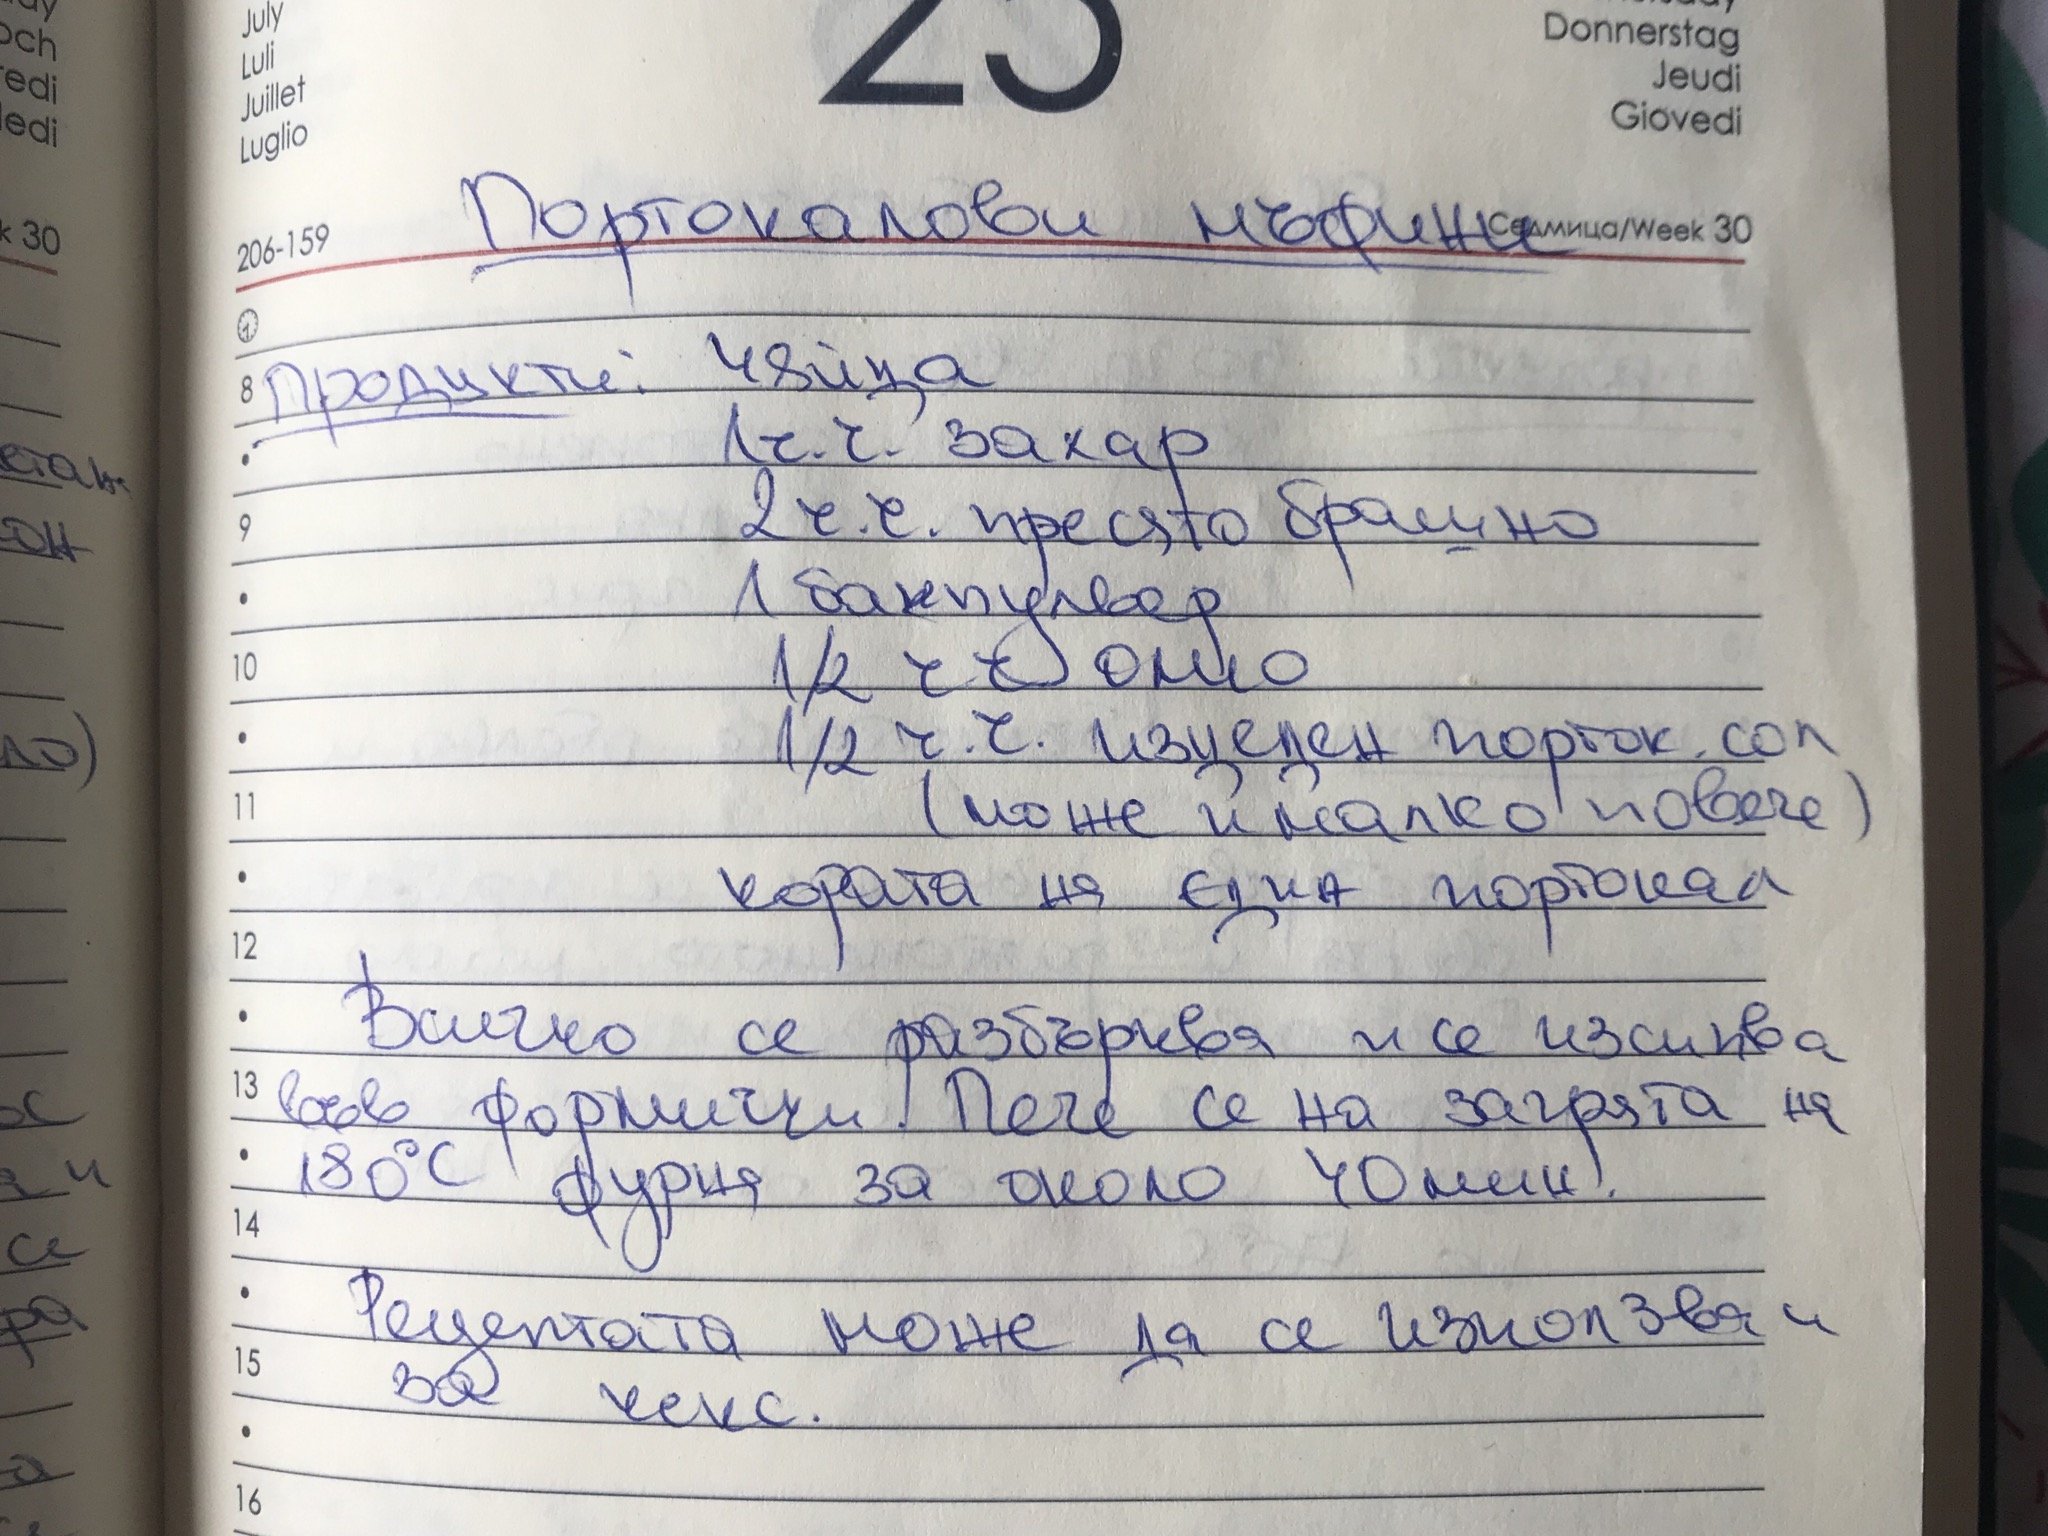 July
Luli
Juillet
Luglio
25
Donnerstag
Jeudi
Giovedi
206-159
Седмица/Week 30
Портокалови мъфини
8 Продукти: 4 яйца
1 ч.ч. захар
9 2 ч.ч. пресято брашно
1 бакпулвер
10 1/2 ч.ч. олио
1/2 ч.ч. изцеден порток. сок
11 (може и малко повече)
кората на един портокал
12
Всичко се разбърква и се изсипва
13 във формички. Пече се на загрята на
180°C фурна за около 40 мин.
14
Рецептата може да се използва и
15 за кекс.
16
och
edi
ledi
k 30
сон
ло)
ос
я и
се
ра